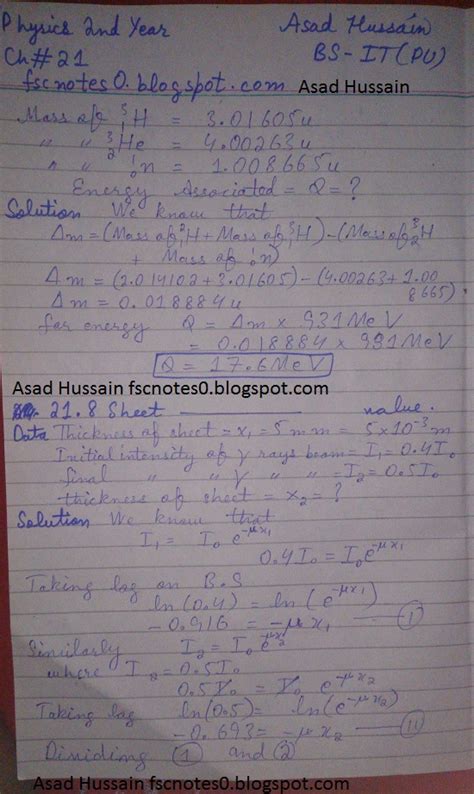 Physics 2nd Year Asad Hussain
Ch # 21 BS-IT (PU)
fscnotes0.blogspot.com Asad Hussain
Mass of ³₁H = 3.01605u
" " ³₂He = 4.00263u
" " ¹₀n = 1.008665u
Energy Associated = Q = ?
Solution We know that
Δm = (Mass of ²₁H + Mass of ³₁H) - (Mass of ³₂H
+ Mass of ¹₀n)
Δm = (2.014102 + 3.01605) - (4.00263 + 1.00
8665)
Δm = 0.018884u
for energy Q = Δm x 931 MeV
= 0.018884 x 931 MeV
Q = 17.6 MeV
Asad Hussain fscnotes0.blogspot.com
21.8 Sheet value.
Data Thickness of sheet = x₁ = 5mm = 5x10⁻³m
Initial intensity of γ rays beam = I₁ = 0.4I₀
final " " γ " " = I₂ = 0.5I₀
thickness of sheet = x₂ = ?
Solution We know that
I₁ = I₀ e^-μx₁
0.4I₀ = I₀e^-μx₁
Taking log on B.S
ln(0.4) = ln(e^-μx₁)
-0.916 = -μx₁ — (1)
Similarly I₂ = I₀e^-μx₂
where I₂ = 0.5I₀
0.5I₀ = I₀ e^-μx₂
Taking log ln(0.5) = ln(e^-μx₂)
-0.693 = -μx₂ — (11)
Dividing (1) and (2)
Asad Hussain fscnotes0.blogspot.com